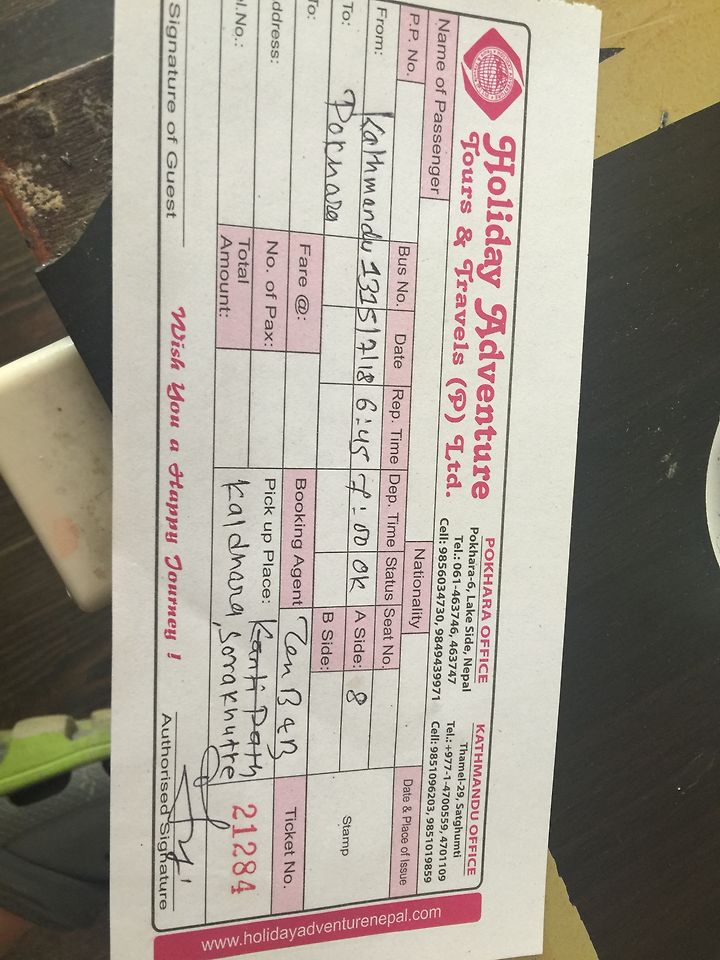 Holiday Adventure
Tours & Travels (P) Ltd.
POKHARA OFFICE
Pokhara-6, Lake Side, Nepal
Tel.: 061-463746, 463747
Cell: 9856034730, 9849439971
KATHMANDU OFFICE
Thamel-29, Satghumti
Tel.: +977-1-4700559, 4701109
Cell: 9851096203, 9851019859
Name of Passenger
Nationality
Date & Place of Issue
P.P. No. Bus No. Date Rep. Time Dep. Time Status Seat No.
From: Kathmandu 1315/7/18 6:45 7:00 OK A Side: 8
To: Pokhara B Side:
Stamp
To: Fare @: Booking Agent Zen B&B Ticket No.
ddress: No. of Pax: Pick up Place: Kanti Path
l.No.: Total Amount: Kaldhara, Sorakhutte 21284
Signature of Guest Wish You a Happy Journey ! Authorised Signature
www.holidayadventurenepal.com